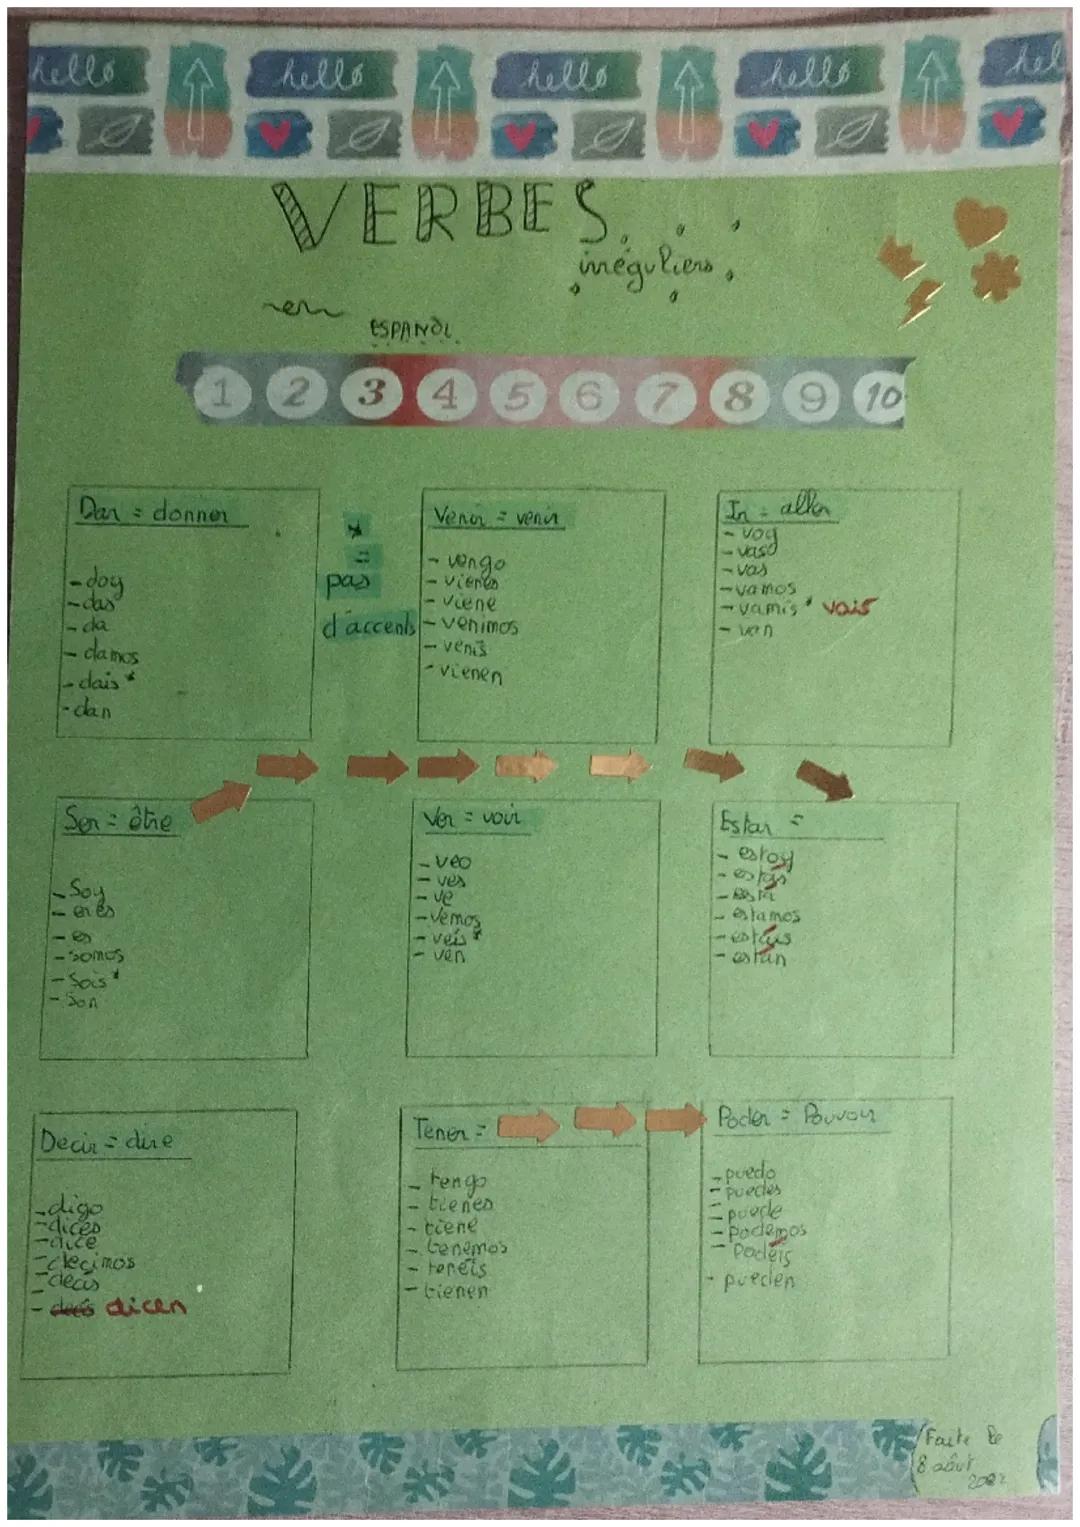 hello hello hello hello hel
VERBES
irréguliers
en
ESPANOL
1 2 3 4 5 6 7 8 9 10
Dar = donner
- doy
- das
- da
- damos
- dais *
- dan
*
=
pas
d'accents
Venir = venir
- vengo
- vienes
- viene
- venimos
- venís
- vienen
Ir = aller
- voy
- vas
- vamos
- vamis * vais
- van
Ser = être
- Soy
- eres
- es
- somos
- Sois *
- Son
Ver = voir
- veo
- ves
- ve
- vemos
- veis *
- ven
Estar =
- estoy
- estás
- está
- estamos
- estáis
- están
Decir = dire
- digo
- dices
- dice
- decimos
- decís
- decís dicen
Tener =
- tengo
- tienes
- tiene
- tenemos
- tenéis
- tienen
Poder = Pouvoir
- puedo
- puedes
- puede
- podemos
- Podéis
- pueden
Faite le
8 août
2022